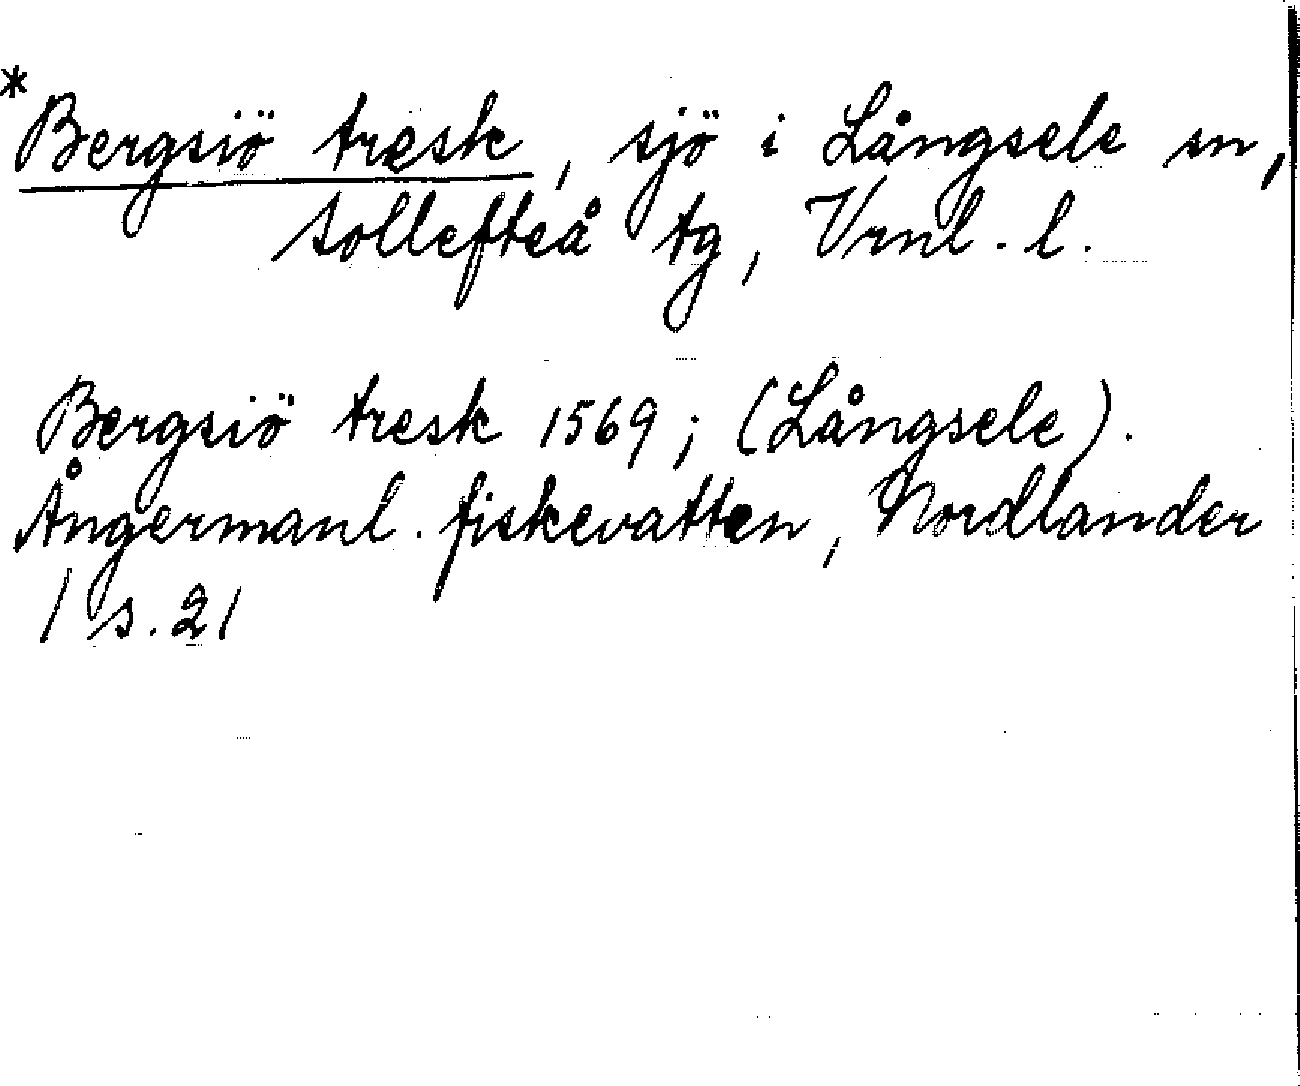 *Bergsiö tresk, sjö i Långsele sn,
Sollefteå tg, Vrnl. l.
Bergsiö tresk 1569; (Långsele).
Ångermanl. fiskevatten, Nordlander
I s. 21